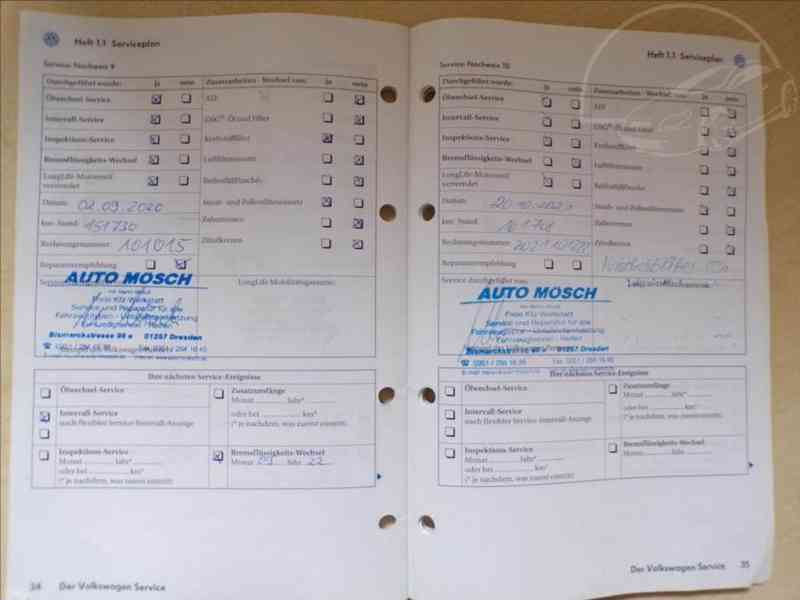 Heft 1.1 Serviceplan
Service-Nachweis 9
Durchgeführt wurde: ja nein
Zusatzarbeiten - Wechsel von: ja nein
Ölwechsel-Service
Intervall-Service
Inspektions-Service
Bremsflüssigkeits-Wechsel
LongLife-Motorenöl
verwendet
Datum: 02.09.2020
km-Stand: 151730
Rechnungsnummer: 101015
Reparaturempfehlung
DSG®-Öl und Filter
Kraftstofffilter
Luftfiltereinsatz
Reifenfüllflasche
Staub- und Pollenfiltereinsatz
Zahnriemen
Zündkerzen
AUTO MOSCH
Freie Kfz-Werkstatt
Service und Reparatur für alle
Bismarckstrasse 96 e 01257 Dresden
LongLife Mobilitätsgarantie:
Ihre nächsten Service-Ereignisse
Ölwechsel-Service
Intervall-Service
nach flexibler Service-Intervall-Anzeige
Inspektions-Service
Monat Jahr*
oder bei km*
(* je nachdem, was zuerst eintritt)
Zusatzumfänge
Monat Jahr*
oder bei km*
(* je nachdem, was zuerst eintritt)
Bremsflüssigkeits-Wechsel
Monat 09 Jahr 22
34 Der Volkswagen Service
Heft 1.1 Serviceplan
Service-Nachweis 10
Durchgeführt wurde: ja nein
Zusatzarbeiten - Wechsel von: ja nein
Ölwechsel-Service
Intervall-Service
Inspektions-Service
Bremsflüssigkeits-Wechsel
LongLife-Motorenöl
verwendet
Datum:
km-Stand:
Rechnungsnummer:
Reparaturempfehlung
DSG®-Öl und Filter
Kraftstofffilter
Luftfiltereinsatz
Reifenfüllflasche
Staub- und Pollenfiltereinsatz
Zahnriemen
Zündkerzen
Service durchgeführt von:
AUTO MOSCH
Freie Kfz-Werkstatt
Service und Reparatur für alle
Bismarckstrasse 96 e 01257 Dresden
Ihre nächsten Service-Ereignisse
Ölwechsel-Service
Intervall-Service
nach flexibler Service-Intervall-Anzeige
Inspektions-Service
Monat Jahr*
oder bei km*
(* je nachdem, was zuerst eintritt)
Zusatzumfänge
Monat Jahr*
oder bei km*
(* je nachdem, was zuerst eintritt)
Bremsflüssigkeits-Wechsel
Monat Jahr
Der Volkswagen Service 35